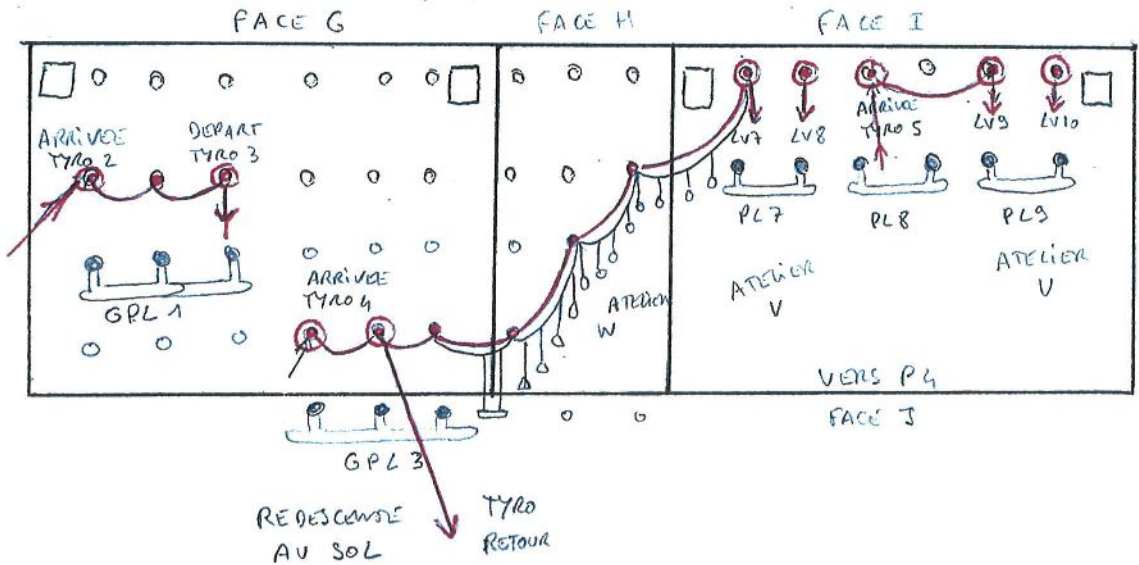 FACE G
FACE H
FACE I
ARRIVEE
TYRO 2
DEPART
TYRO 3
GPL 1
ARRIVEE
TYRO 4
ATELIER
W
LV7
LV8
ARRIVEE
TYRO 5
LV9
LV10
PL7
PL8
PL9
ATELIER
V
ATELIER
V
VERS P4
FACE J
GPL 3
REDESCENTE
AU SOL
TYRO
RETOUR